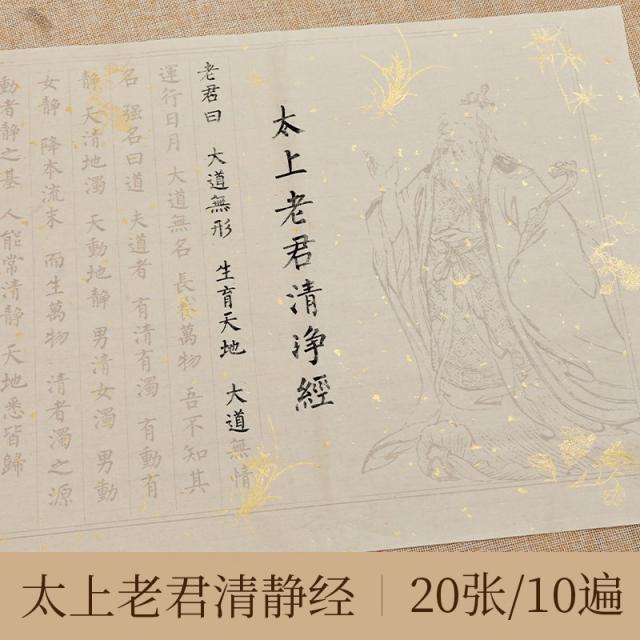 太上老君清浄經
老君曰 大道無形 生育天地 大道無情
運行日月 大道無名 長養萬物 吾不知其
名 强名曰道 夫道者 有清有濁 有動有
靜 天清地濁 天動地靜 男清女濁 男動
女靜 降本流末 而生萬物 清者濁之源
動者靜之基 人能常清靜 天地悉皆歸
太上老君清静经 | 20张/10遍